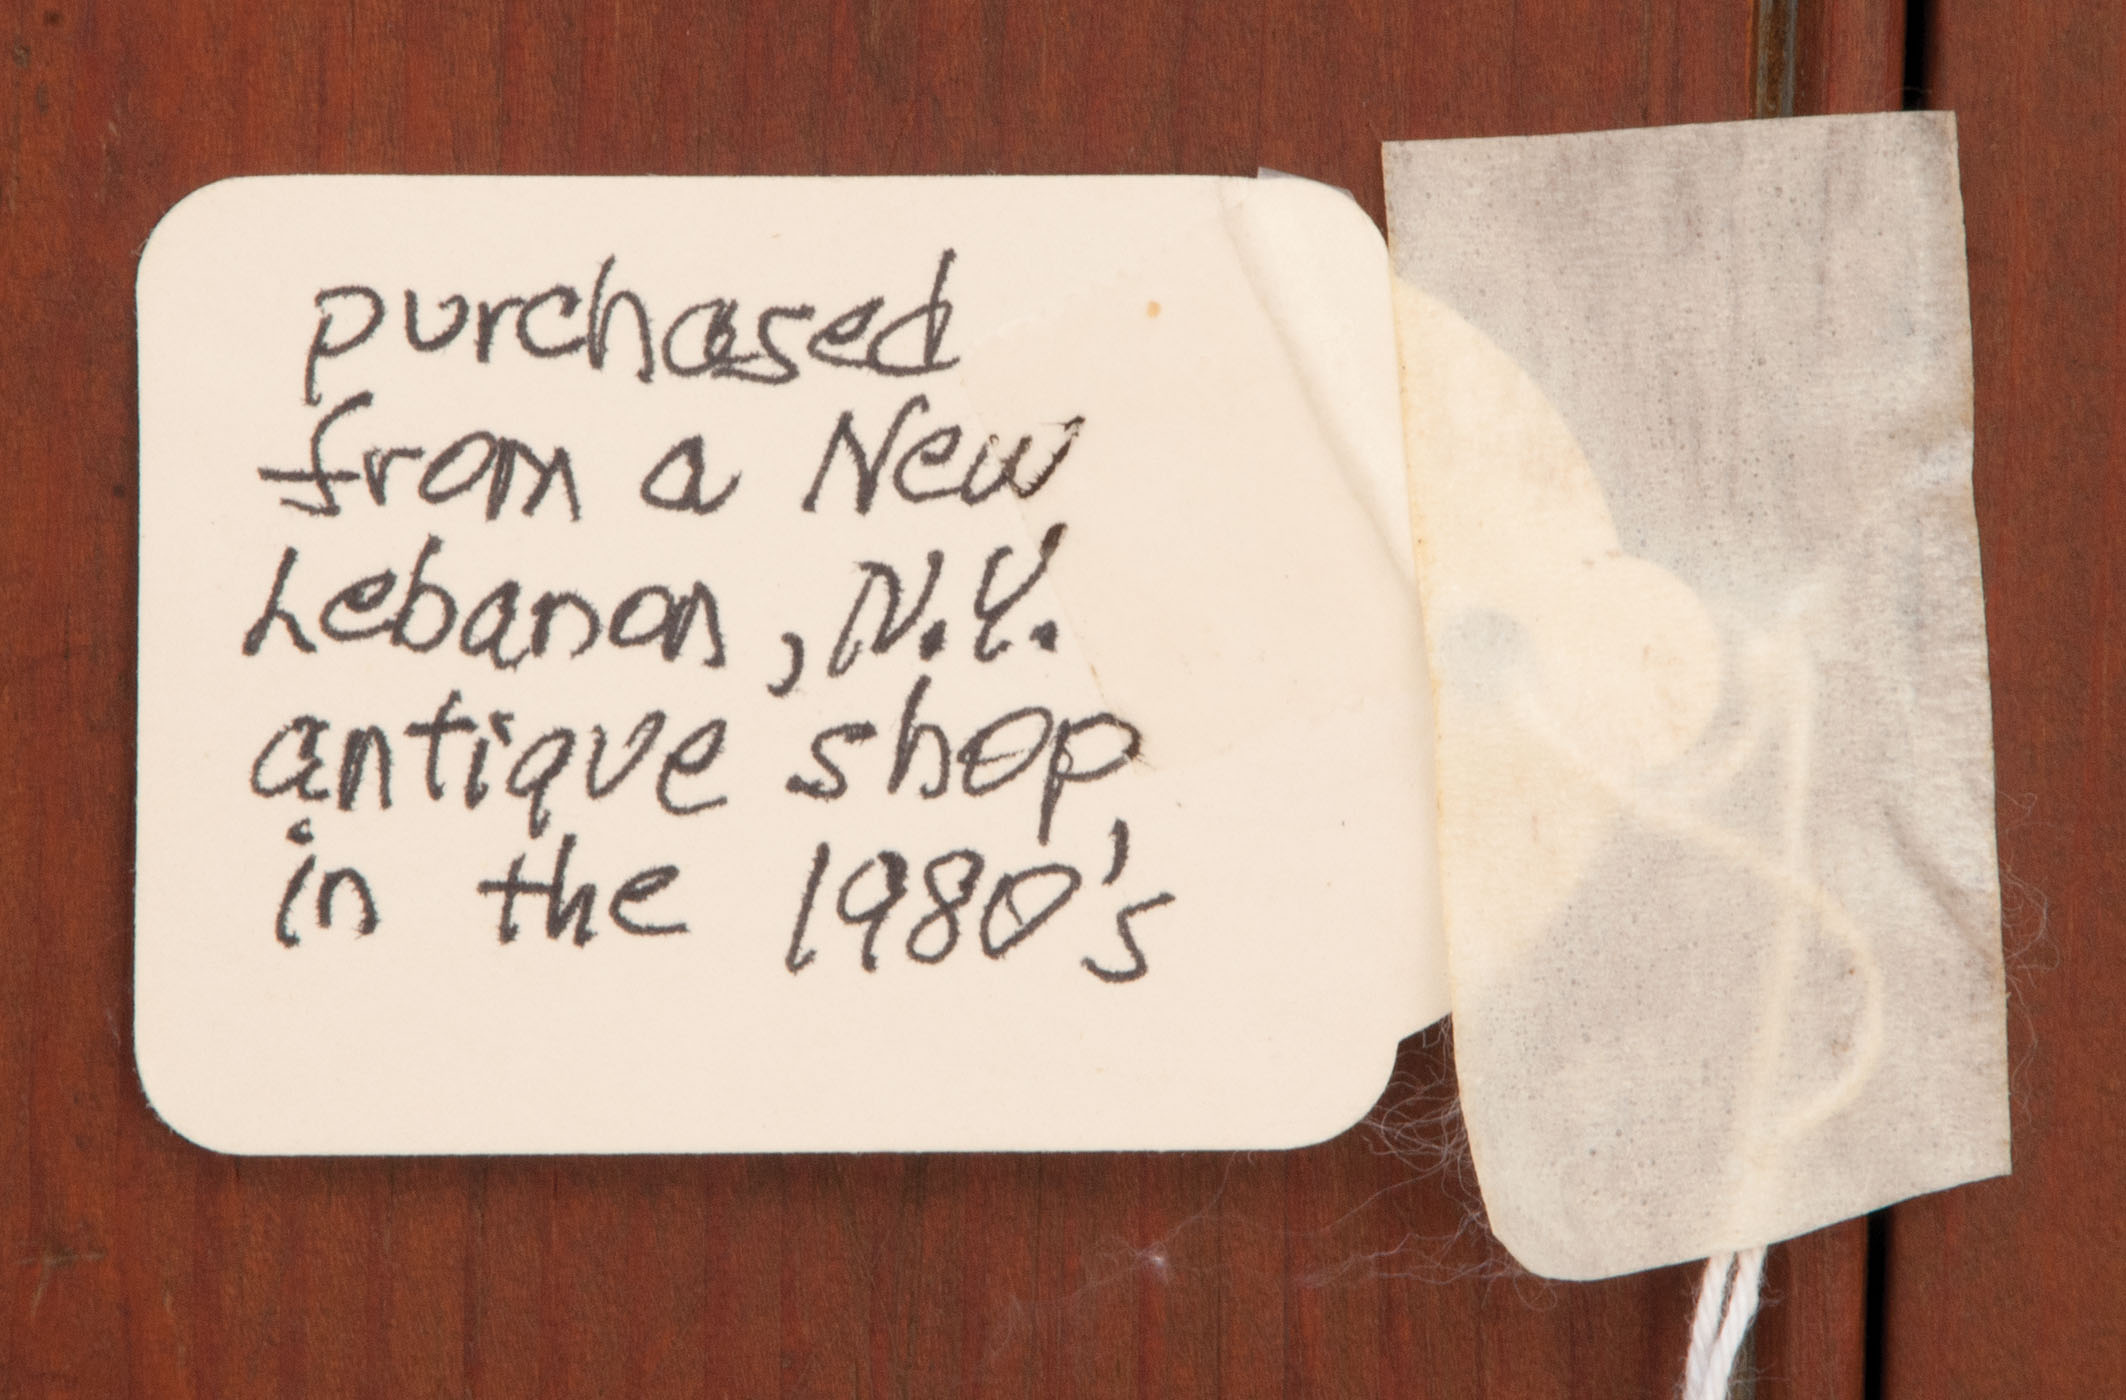 purchased
from a New
Lebanon, N.Y.
antique shop,
in the 1980's